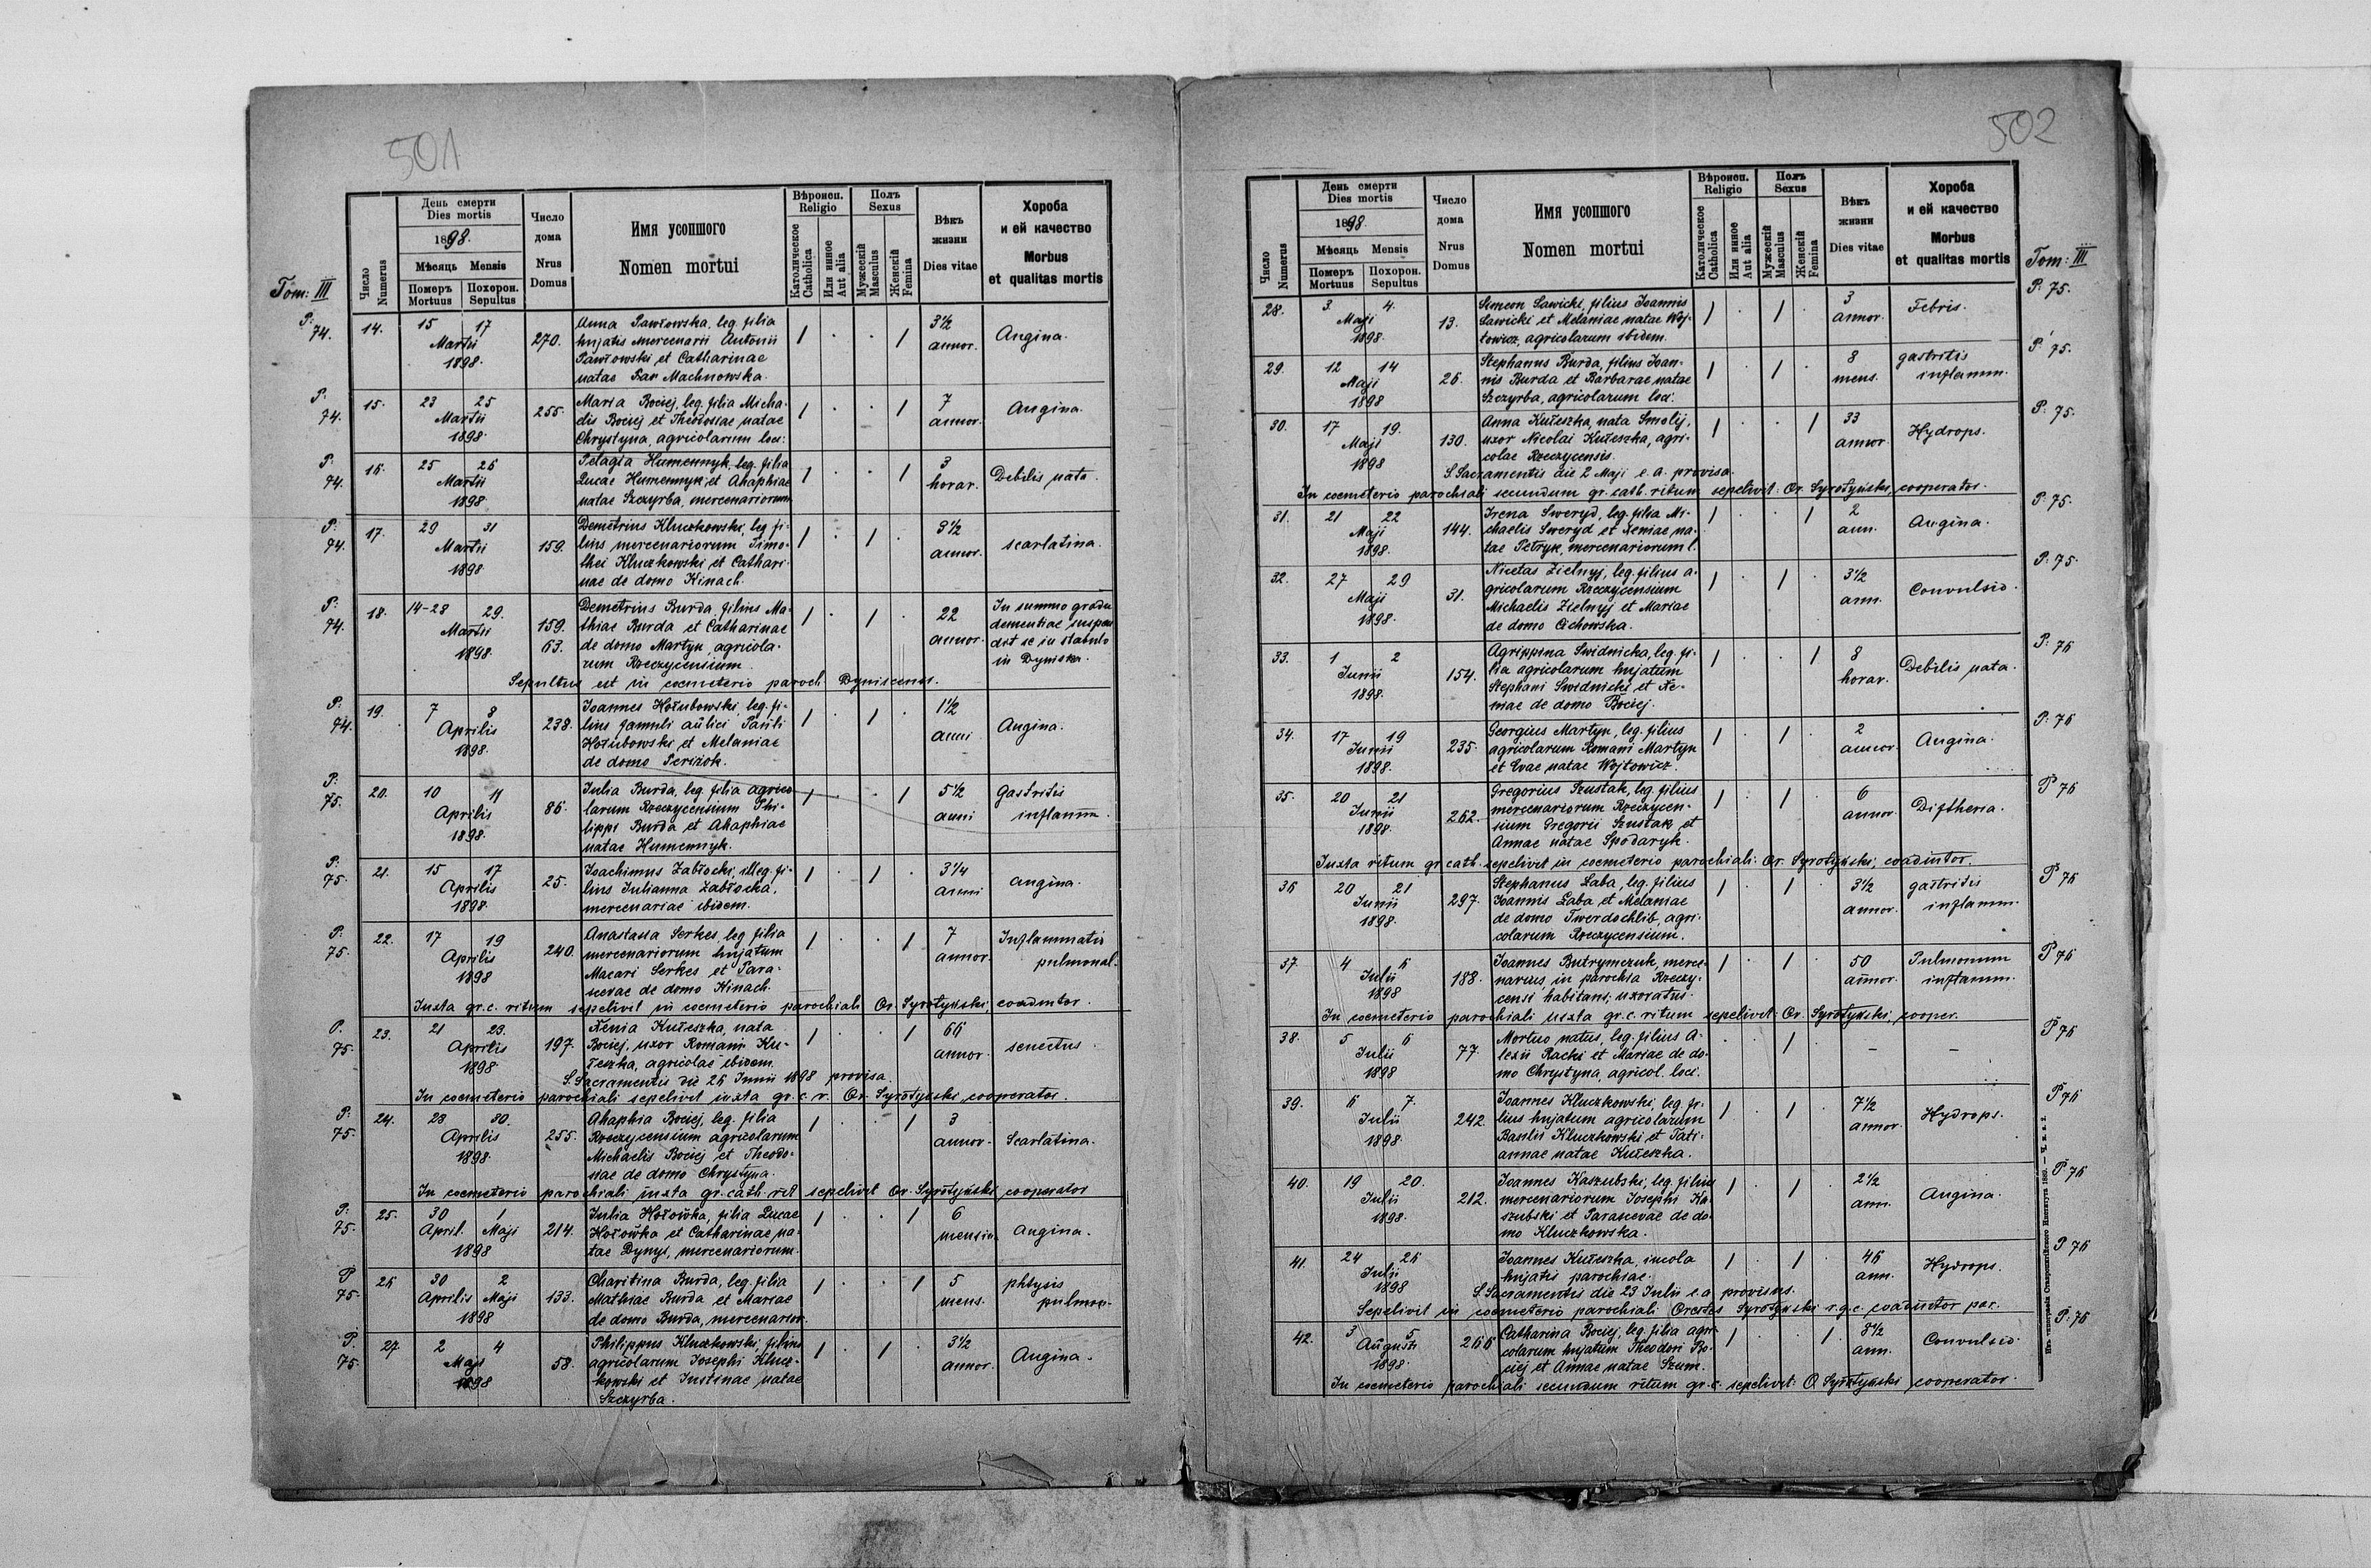 501
Tom: III
Число
Numerus
День смерти
Dies mortis
1898.
Мѣсяць Mensis
Померъ
Mortuus
Похорон.
Sepultus
Число
дома
Nrus
Domus
Имя усопшого
Nomen mortui
Вѣроисп.
Religio
Католическое
Catholica
Или иное
Aut alia
Полъ
Sexus
Мужескій
Masculus
Женскій
Femina
Вѣкъ
жизни
Dies vitae
Хороба
и ей качество
Morbus
et qualitas mortis
P: 74. 14. 15 17 Martii 1898. 270.
Anna Pawłowska, leg. filia
hujatis mercenarii Antonii
Pawłowski et Catharinae
natae Machnowska.
1 . . 1 3½ annor. Angina.
P. 74. 15. 23 25 Martii 1898. 255.
Maria Bociej, leg. filia Micha-
elis Bociej et Theodosiae natae
Chrystyna, agricolarum loci.
1 . . 1 7 annor. Angina.
P: 74. 16. 25 26 Martii 1898
Pelagia Humennyk, leg. filia
Lucae Humennyk et Ahaphiae
natae Szczyrba, mercenariorum
1 . . 1 3 horar. Debilis nata.
P: 74. 17. 29 31 Martii 1898 159.
Demetrius Kluczkowski, leg. fi-
lius mercenariorum Timo-
thei Kluczkowski et Cathari-
nae de domo Kinach.
1 . 1 . 3½ annor. scarlatina.
P: 74. 18. 14-28 29. Martii 1898. 159. 63.
Demetrius Burda, filius Ma-
thiae Burda et Catharinae
de domo Martyn, agricola-
rum Rzeczycensium.
1 . 1 . 22 annor.
In summo gradu
dementiae suspen
dit se in stabulo
in Dyniska.
Sepultus est in coemeterio paroch. Dyniscensi.
P. 74. 19. 7 8 Aprilis 1898. 238.
Joannes Hołubowski, leg. fi-
lius famuli aulici Pauli
Hołubowski et Melaniae
de domo
1 . 1 . 1½ anni Angina.
P: 75. 20. 10 11 Aprilis 1898. 86.
Iulia Burda, leg. filia agrico
larum Rzeczycensium Phi-
lippi Burda et Ahaphiae
natae Humennyk.
1 . . 1 5½ anni Gastritis inflamm.
P: 75. 21. 15 17 Aprilis 1898. 25.
Joachimus Zabłocki, illeg. fi-
lius Iulianna Zabłocka,
mercenariae ibidem.
1 . 1 . 3¼ anni angina.
P: 75. 22. 17 19 Aprilis 1898 240.
Anastasia Serkes, leg. filia
mercenariorum hujatum
Macari Serkes et Para-
scevae de domo Kinach.
1 . . 1 7 annor. Inflammatio pulmonal.
Iuxta gr. c. ritum sepelivit in coemeterio parochiali Or. Syrotyński, coadiutor.
P. 75. 23. 21 23. Aprilis 1898 197.
Xenia Kułeszka, nata
Bociej, uxor Romani Ku-
łeszka, agricolae ibidem.
1 . . 1 66 annor. senectus.
S. Sacramentis die 26 Iunii 1898 provisa.
In coemeterio parochiali sepelivit iuxta gr. c. r. Or. Syrotyński cooperator.
P: 75. 24. 28 30. Aprilis 1898. 255.
Ahaphia Bociej, leg. filia
Rzeczycensium agricolarum
Michaelis Bociej et Theodo-
siae de domo Chrystyna.
1 . . 1 3 annor. Scarlatina.
In coemeterio parochiali iuxta gr. cath. rit. sepelivit Or. Syrotyński, cooperator
P: 75. 25. 30 1 April. Maji 1898 214.
Iulia Hołówka, filia Lucae
Hołówka et Catharinae na-
tae Dynys, mercenariorum.
1 . . 1 6 mensium Angina.
P 75. 26 30 2 Aprilis Maji 1898 133.
Charitina Burda, leg. filia
Mathiae Burda et Mariae
de domo Burda, mercenarior.
1 . . 1 5 mens. phtysis pulmon.
P. 75. 27. 2 4 Maji 1898 58.
Philippus Kluczkowski, filius
agricolarum Josephi Klucz-
kowski et Justinae natae
Szczyrba.
1 . 1 . 3½ annor. Angina.
502
Число
Numerus
День смерти
Dies mortis
1898.
Мѣсяць Mensis
Померъ
Mortuus
Похорон.
Sepultus
Число
дома
Nrus
Domus
Имя усопшого
Nomen mortui
Вѣроисп.
Religio
Католическое
Catholica
Или иное
Aut alia
Полъ
Sexus
Мужескій
Masculus
Женскій
Femina
Вѣкъ
жизни
Dies vitae
Хороба
и ей качество
Morbus
et qualitas mortis
Tom: III
28. 3 4. Maji 1898. 13.
Simeon Sawicki, filius Joannis
Sawicki et Melaniae natae Woj-
towicz, agricolarum ibidem.
1 . 1 . 3 annor. Febris. P: 75.
29. 12 14 Maji 1898 26.
Stephanus Burda, filius Joan-
nis Burda et Barbarae natae
Szczyrba, agricolarum loci.
1 . 1 . 8 mens. gastritis inflamm. P: 75.
30. 17 19. Maji 1898 130.
Anna Kułeszka, nata Smolij,
uxor Nicolai Kułeszka, agri-
colae Rzeczycensis.
1 . . 1 33 annor. Hydrops. P: 75.
S. Sacramentis die 2 Maji e. a. provisa.
In coemeterio parochiali secundum gr. cath. ritum sepelivit: Or. Syrotyński, cooperator.
31. 21 22 Maji 1898. 144.
Irena Sweryd, leg. filia Mi-
chaelis Sweryd et Xeniae na-
tae Petryk, mercenariorum l.
1 . . 1 2 ann. Angina. P: 75.
32. 27 29 Maji 1898. 31.
Nicetas Zielnyj, leg. filius a-
gricolarum Rzeczycensium
Michaelis Zielnyj et Mariae
de domo Cichowska.
1 . 1 . 3½ ann. Convulsio. P: 75.
33. 1 2 Iunii 1898. 154.
Agrippina Swidnicka, leg. fi-
lia agricolarum hujatum
Stephani Swidnicki et Xe-
niae de domo Bociej.
1 . . 1 8 horar. Debilis nata. P: 76
34. 17 19 Iunii 1898. 235.
Georgius Martyn, leg. filius
agricolarum Romani Martyn
et Evae natae Wojtowicz.
1 . 1 . 2 annor. Angina. P: 76
35. 20 21 Iunii 1898. 262.
Gregorius Szustak, leg. filius
mercenariorum Rzeczycen-
sium Gregorii Szustak et
Annae natae Spodaryk.
1 . 1 . 6 annor. Diftheria. P 76
Iuxta ritum gr. cath. sepelivit in coemeterio parochiali: Or. Syrotyński, coadiutor.
36 20 21 Iunii 1898. 297.
Stephanus Laba, leg. filius
Joannis Laba et Melaniae
de domo Twerdochlib, agri-
colarum Rzeczycensium.
1 . 1 . 3½ annor. gastritis inflamm. P 76
37. 4 6 Iulii 1898 188.
Joannes Butrymczuk, merce-
narius in parochia Rzeczy-
censi habitans, uxoratus.
1 . 1 . 50 annor. Pulmonum inflamm. P 76
In coemeterio parochiali iuxta gr. c. ritum sepelivit: Or. Syrotyński, cooper.
38. 5 6 Iulii 1898 77.
Mortuo natus, leg. filius A-
lexii Racki et Mariae de do-
mo Chrystyna, agricol. loci.
. . 1 . – – P 76
39. 6 7. Iulii 1898. 242.
Joannes Kluczkowski, leg. fi-
lius hujatum agricolarum
Basilii Kluczkowski et Tati-
annae natae Kułeszka.
1 . 1 . 7½ annor. Hydrops. P 76
40. 19 20. Iulii 1898. 212.
Joannes Kaszubski, leg. filius
mercenariorum Iosephi Ka-
szubski et Parascevae de do-
mo Kluczkowska.
1 . 1 . 2½ ann. Angina. P 76
41. 24 26 Iulii 1898
Joannes Kułeszka, incola
hujatis parochiae.
1 . 1 . 46 ann. Hydrops. P 76
S. Sacramentis die 23 Iulii e. a. provisus.
Sepelivit in coemeterio parochiali Orestes Syrotyński r. g. c. coadiutor par.
42. 3 5 Augusti 1898. 266
Catharina Bociej, leg. filia agri-
colarum hujatum Theodori Bo-
ciej et Annae natae Szum.
1 . . 1. 8½ ann. Convulsio. P: 76
In coemeterio parochiali secundum ritum gr. c. sepelivit: O. Syrotyński cooperator.
Изъ типографіи Ставропигійского Института 1889.